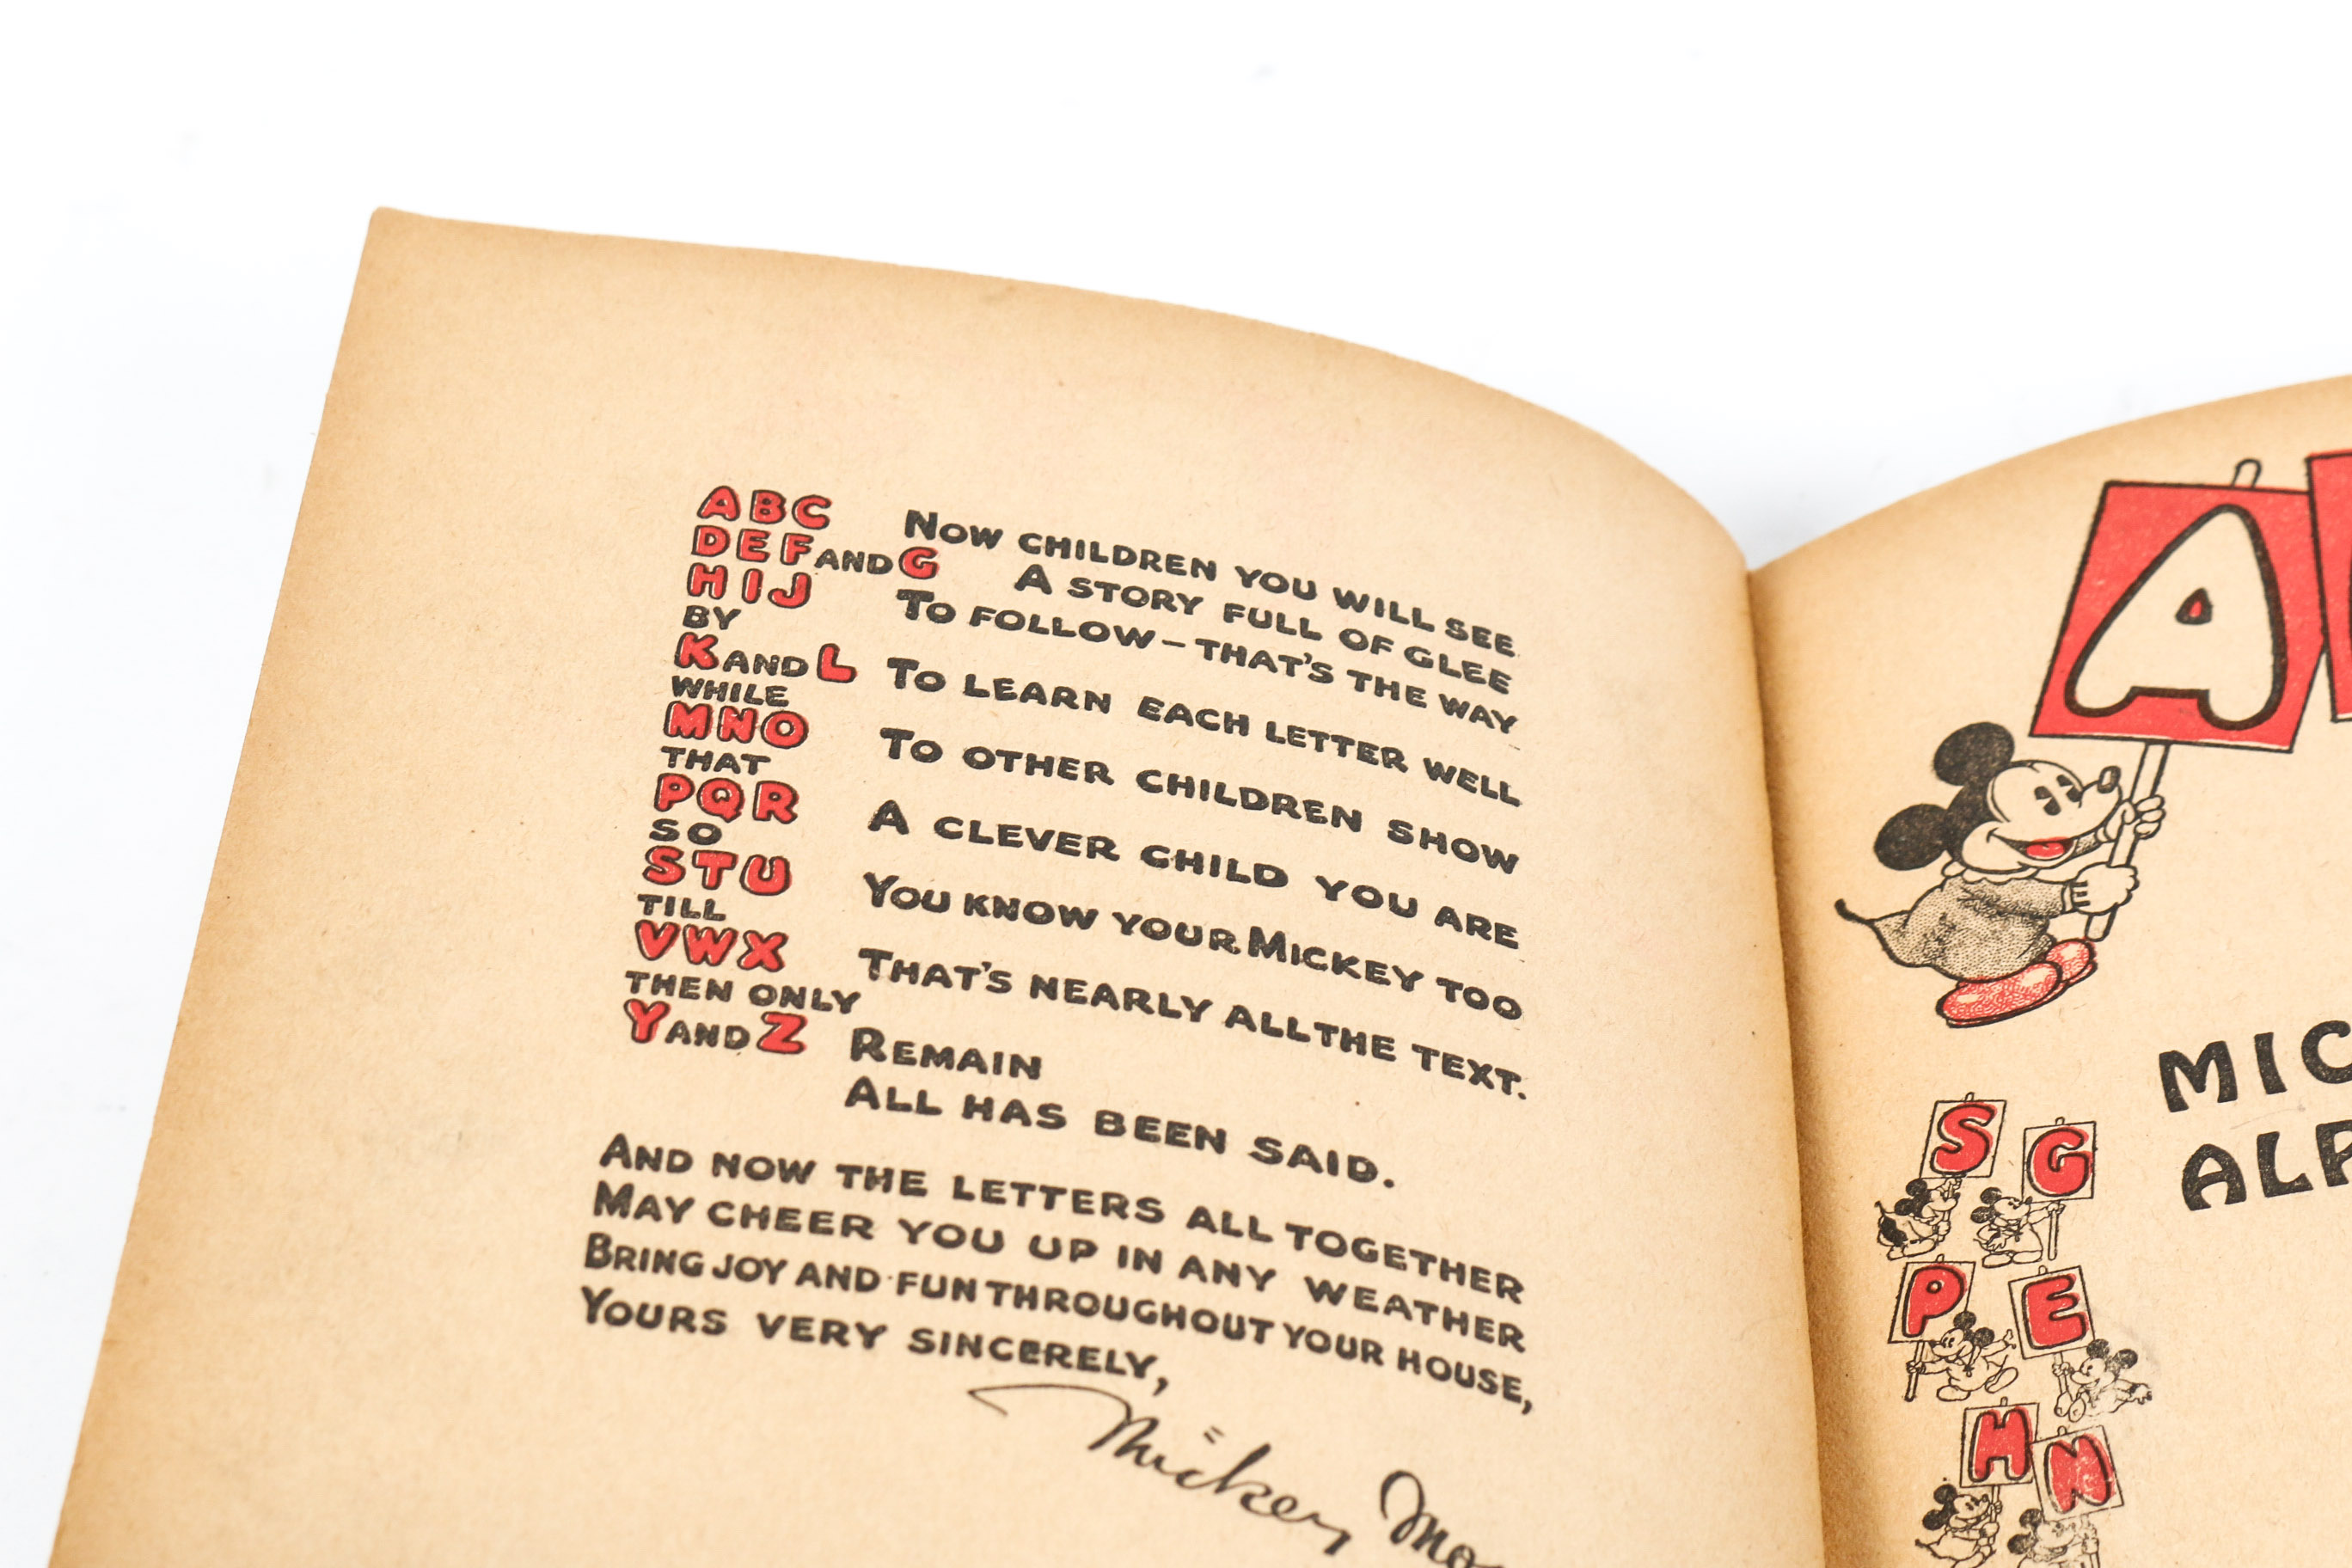 ABC NOW CHILDREN YOU WILL SEE
DEF AND G A STORY FULL OF GLEE
HIJ TO FOLLOW - THAT'S THE WAY
BY
K AND L TO LEARN EACH LETTER WELL
WHILE
MNO TO OTHER CHILDREN SHOW
THAT
PQR A CLEVER CHILD YOU ARE
SO
STU YOU KNOW YOUR MICKEY TOO
TILL
VWX THAT'S NEARLY ALL THE TEXT.
THEN ONLY
Y AND Z REMAIN
ALL HAS BEEN SAID.
AND NOW THE LETTERS ALL TOGETHER
MAY CHEER YOU UP IN ANY WEATHER
BRING JOY AND FUN THROUGHOUT YOUR HOUSE,
YOURS VERY SINCERELY,
Mickey
A
S G
P E
H N